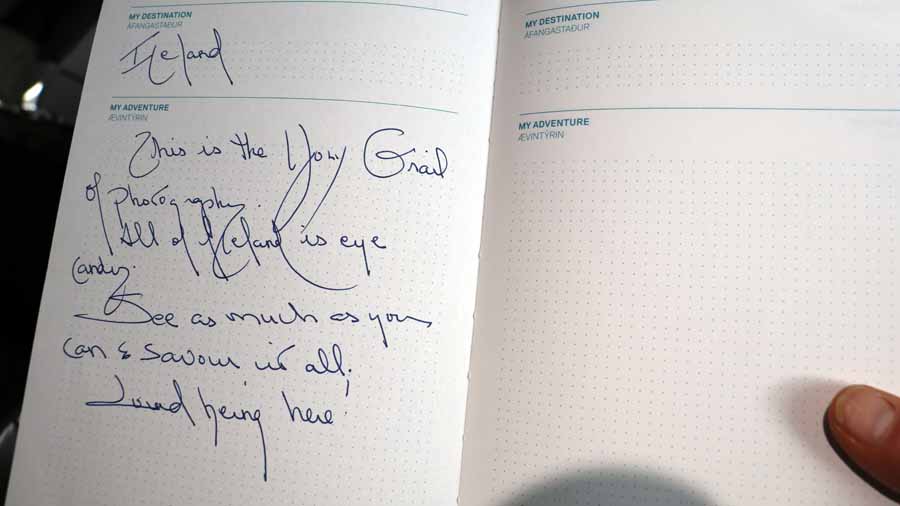 MY DESTINATION
ÁFANGASTAÐUR
Iceland
MY ADVENTURE
ÆVINTÝRIN
This is the Holy Grail
of photography.
All of Iceland is eye
candy.
See as much as you
can & savour it all.
Loved being here!
MY DESTINATION
ÁFANGASTAÐUR
MY ADVENTURE
ÆVINTÝRIN